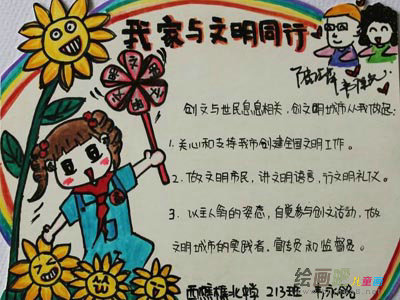 我家与文明同行
文
明
创文与世民息息相关，创文明城市从我做起：
1. 关心和支持我市创建全国文明工作。
2. 做文明市民，讲文明语言，行文明礼仪。
3. 以主人翁的姿态，自觉参与创文活动，做
文明城市的实践者、宣传员和监督员。
213班
绘画吧
儿童画